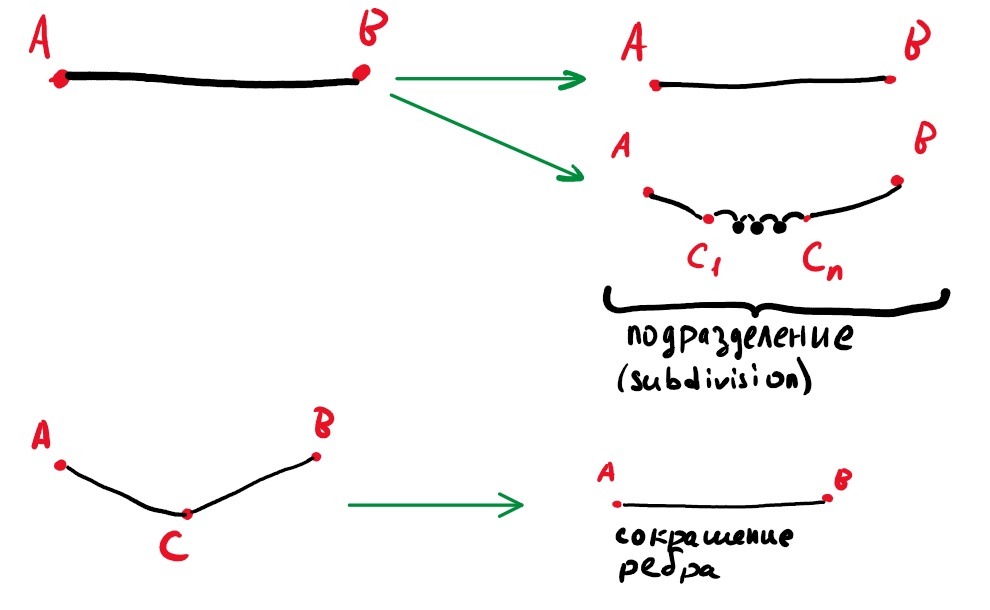 A B
A B
A B
C1 Cn
подразделение
(subdivision)
A B
C
A B
сокращение
ребра